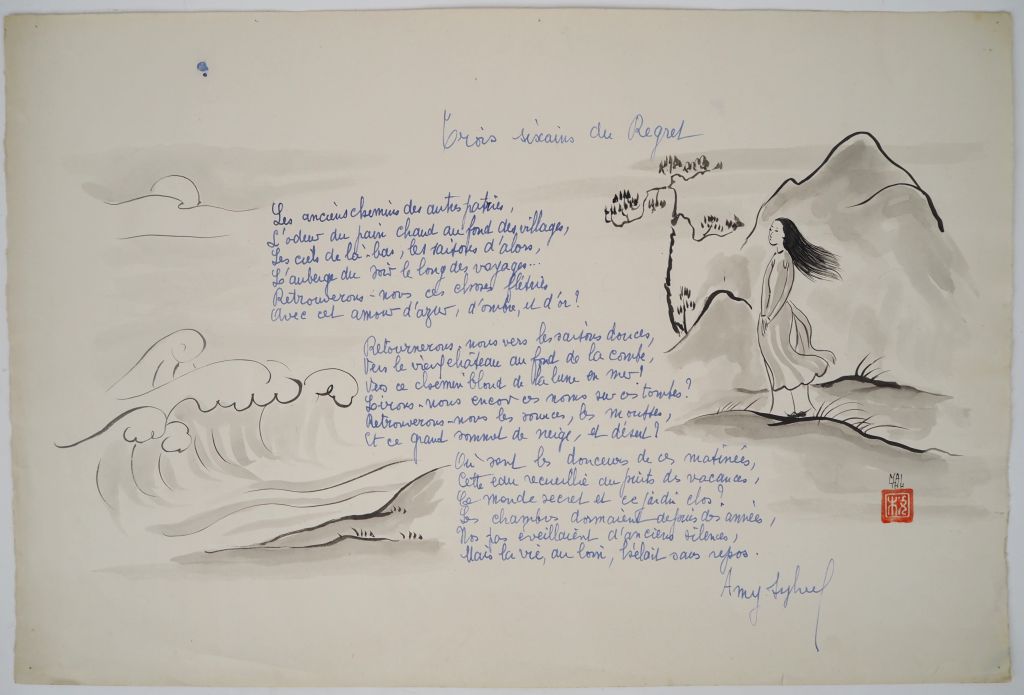 Trois sixains du Regret
Les anciens chemins des autres patries,
L'odeur du pain chaud au fond des villages,
Les ciels de là-bas, les saisons d'alors,
L'auberge du soir le long des voyages...
Retrouverons-nous ces choses flétries
Avec cet amour d'azur, d'ombre, et d'or?
Retournerons-nous vers les saisons douces,
Vers le vieux château au fond de la combe,
Vers ce chemin blond de la lune en mer!
Lirons-nous encor ces noms sur ces tombes?
Retrouverons-nous les sources, les mousses,
Et ce grand sommet de neige, et désert?
Où sont les douceurs de ces matinées,
Cette eau recueillie au puits des vacances,
Ce monde secret et ce jardin clos?
Les chambres dormaient depuis des années,
Nos pas éveillaient d'anciens silences,
Mais la vie, au loin, hélait sans repos.
Amy Sylvel
MAI
THU